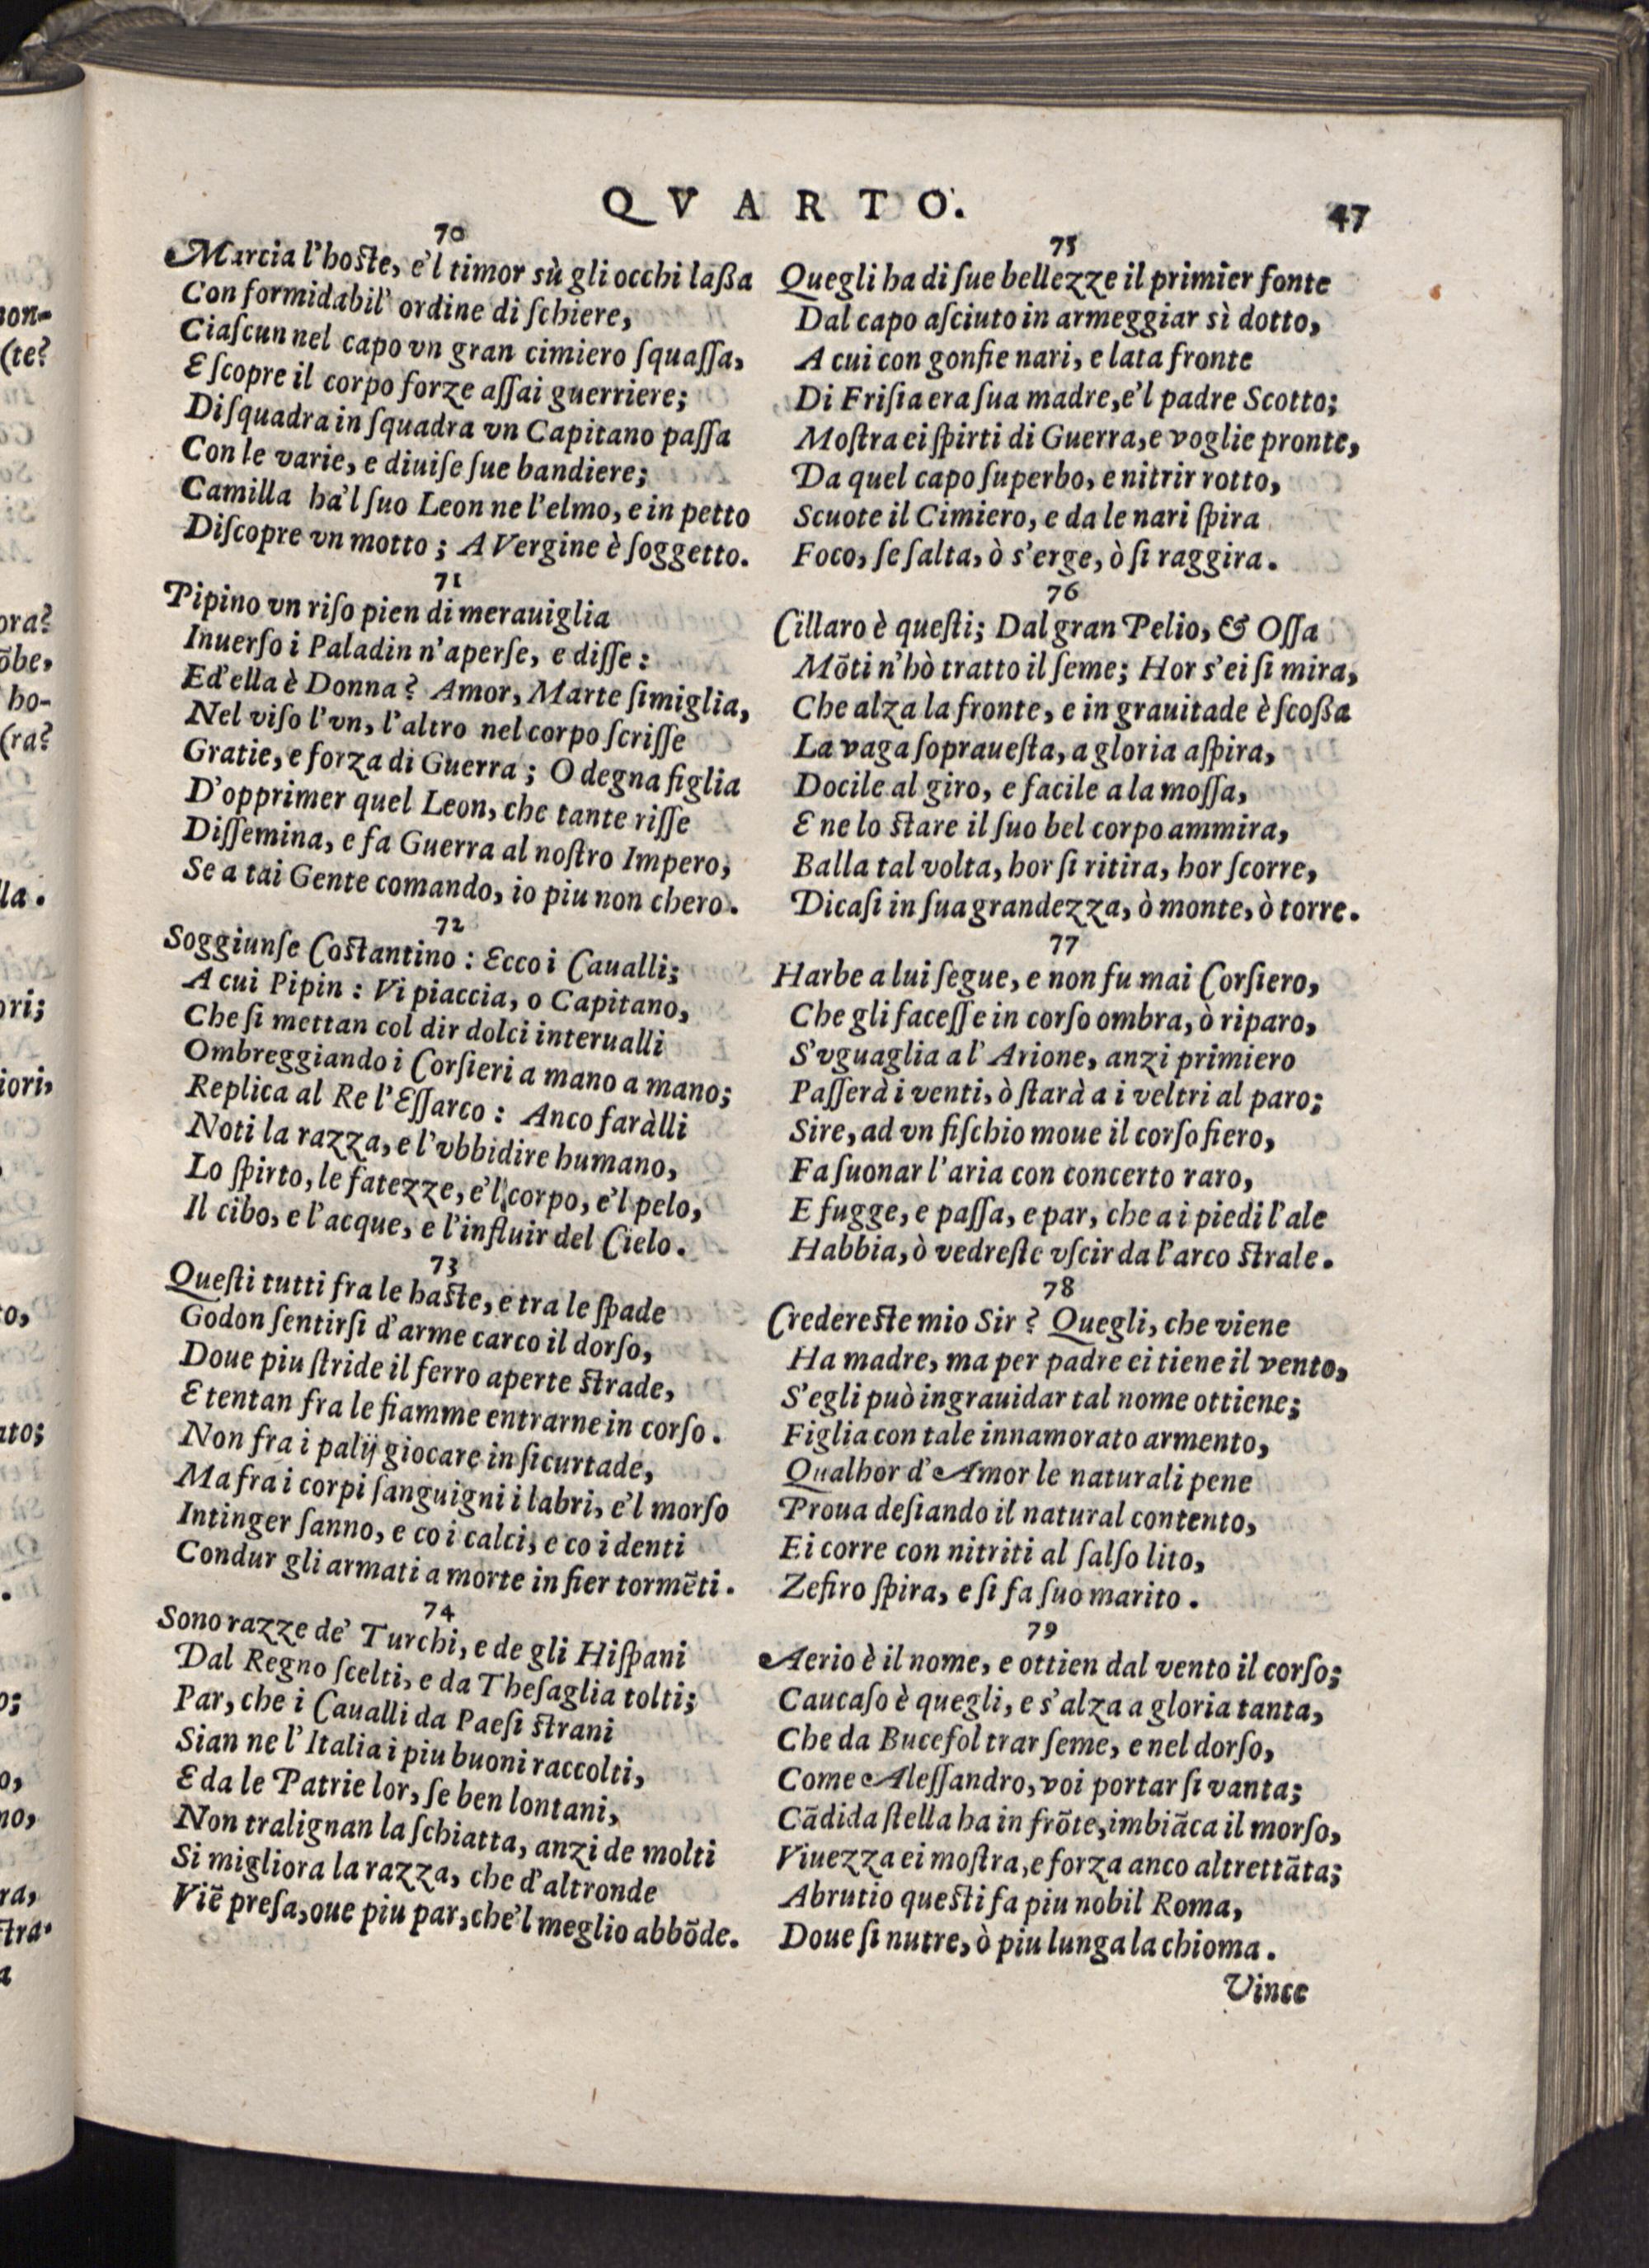 QVARTO.
47
70
Marcia l'hoste, e'l timor sù gli occhi laßa
Con formidabil' ordine di ſchiere,
Ciaſcun nel capo vn gran cimiero ſquaſſa,
E ſcopre il corpo forze aſſai guerriere;
Di ſquadra in ſquadra vn Capitano paſſa
Con le varie, e diuiſe ſue bandiere;
Camilla ha'l ſuo Leon ne l'elmo, e in petto
Diſcopre vn motto; A Vergine è ſoggetto.
71
Pipino vn riſo pien di merauiglia
Inuerſo i Paladin n'aperſe, e diſſe:
Ed'ella è Donna? Amor, Marte ſimiglia,
Nel viſo l'vn, l'altro nel corpo ſcriſſe
Gratie, e forza di Guerra; O degna figlia
D'opprimer quel Leon, che tante riſſe
Diſſemina, e fa Guerra al noſtro Impero,
Se a tai Gente comando, io piu non chero.
72
Soggiunſe Costantino: Ecco i Caualli;
A cui Pipin: Vi piaccia, o Capitano,
Che ſi mettan col dir dolci interualli
Ombreggiando i Corſieri a mano a mano;
Replica al Re l'Eſſarco: Anco faràlli
Noti la razza, e l'vbbidire humano,
Lo ſpirto, le fatezze, e'l corpo, e'l pelo,
Il cibo, e l'acque, e l'influir del Cielo.
73
Queſti tutti fra le haste, e tra le ſpade
Godon ſentirſi d'arme carco il dorſo,
Doue piu ſtride il ferro aperte strade,
E tentan fra le fiamme entrarne in corſo.
Non fra i palij giocare in ſicurtade,
Ma fra i corpi ſanguigni i labri, e'l morſo
Intinger ſanno, e co i calci, e co i denti
Condur gli armati a morte in fier tormēti.
74
Sono razze de' Turchi, e de gli Hiſpani
Dal Regno ſcelti, e da Theſaglia tolti;
Par, che i Caualli da Paeſi strani
Sian ne l'Italia i piu buoni raccolti,
E da le Patrie lor, ſe ben lontani,
Non tralignan la ſchiatta, anzi de molti
Si migliora la razza, che d'altronde
Viē preſa, oue piu par, che'l meglio abbōde.
75
Quegli ha di ſue bellezze il primier fonte
Dal capo aſciuto in armeggiar sì dotto,
A cui con gonfie nari, e lata fronte
Di Friſia era ſua madre, e'l padre Scotto;
Moſtra ei ſpirti di Guerra, e voglie pronte,
Da quel capo ſuperbo, e nitrir rotto,
Scuote il Cimiero, e da le nari ſpira
Foco, ſe ſalta, ò s'erge, ò ſi raggira.
76
Cillaro è queſti; Dal gran Pelio, & Oſſa
Mōti n'hò tratto il ſeme; Hor s'ei ſi mira,
Che alza la fronte, e in grauitade è ſcoßa
La vaga ſoprauesta, a gloria aſpira,
Docile al giro, e facile a la moſſa,
E ne lo stare il ſuo bel corpo ammira,
Balla tal volta, hor ſi ritira, hor ſcorre,
Dicaſi in ſua grandezza, ò monte, ò torre.
77
Harbe a lui ſegue, e non fu mai Corſiero,
Che gli faceſſe in corſo ombra, ò riparo,
S'vguaglia a l'Arione, anzi primiero
Paſſerà i venti, ò ſtarà a i veltri al paro;
Sire, ad vn fiſchio moue il corſo fiero,
Fa ſuonar l'aria con concerto raro,
E fugge, e paſſa, e par, che a i piedi l'ale
Habbia, ò vedreſte vſcir da l'arco strale.
78
Credereste mio Sir? Quegli, che viene
Ha madre, ma per padre ei tiene il vento,
S'egli può ingrauidar tal nome ottiene;
Figlia con tale innamorato armento,
Qualhor d'Amor le naturali pene
Proua deſiando il natural contento,
Ei corre con nitriti al ſalſo lito,
Zefiro ſpira, e ſi fa ſuo marito.
79
Aerio è il nome, e ottien dal vento il corſo;
Caucaſo è quegli, e s'alza a gloria tanta,
Che da Bucefol trar ſeme, e nel dorſo,
Come Aleſſandro, voi portar ſi vanta;
Cādida ſtella ha in frōte, imbiāca il morſo,
Viuezza ei moſtra, e forza anco altrettāta;
Abrutio questi fa piu nobil Roma,
Doue ſi nutre, ò piu lunga la chioma.
Vince